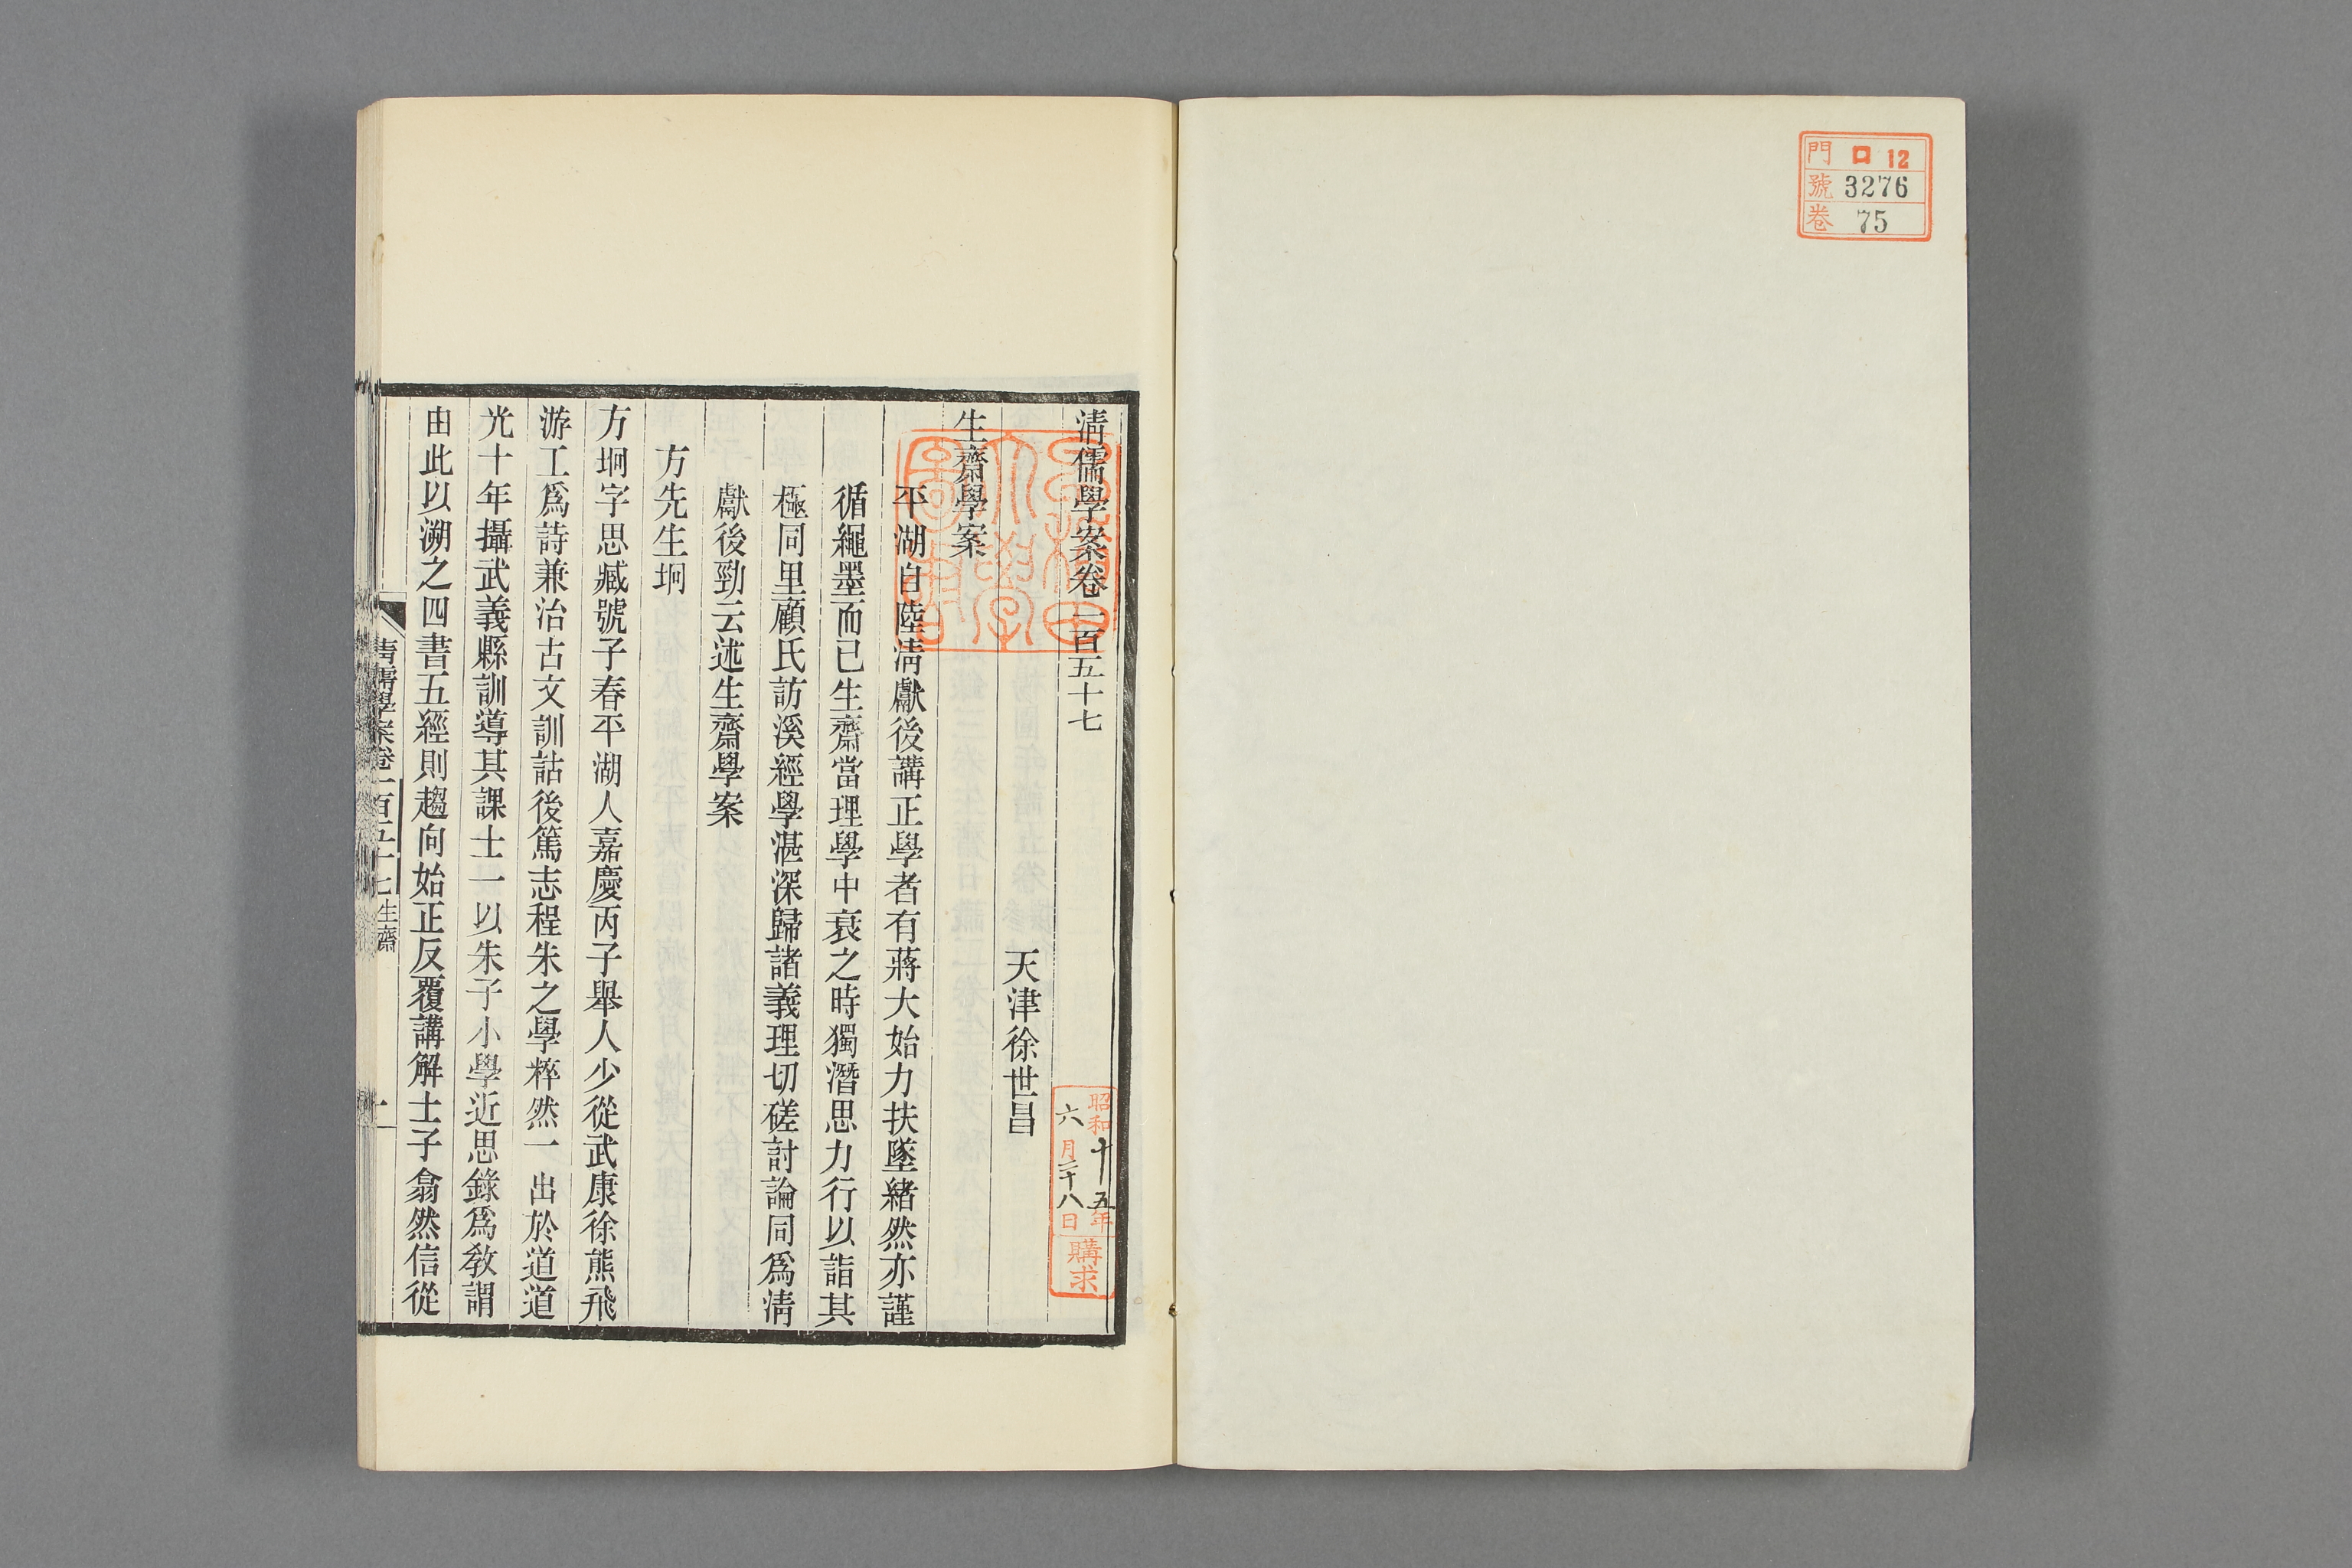 門 ロ 12
號 3276
卷 75
清儒學案卷一百五十七
天津徐世昌
生齋學案
平湖自陸清獻後講正學者有蔣大始力扶墜緒然亦謹
循繩墨而已生齋當理學中衰之時獨潛思力行以詣其
極同里顧氏訪溪經學湛深歸諸義理切磋討論同爲清
獻後勁云述生齋學案
方先生坰
方坰字思臧號子春平湖人嘉慶丙子舉人少從武康徐熊飛
游工爲詩兼治古文訓詁後篤志程朱之學粹然一出於道道
光十年攝武義縣訓導其課士一以朱子小學近思錄爲敎謂
由此以溯之四書五經則趨向始正反覆講解士子翕然信從
清儒學案卷一百五十七 生齋
一
早稻田大學圖書
昭和十五年
六月二十八日
購求